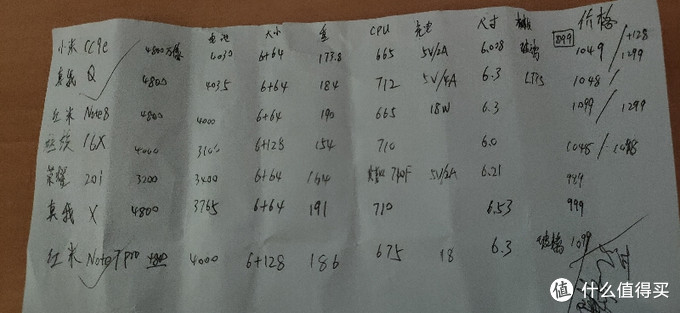 电池 大小 重 CPU 充电 尺寸 价格
小米 CC9e 4800万 4030 6+64 173.8 665 5V/2A 6.028 玻璃 899 1049 / +128 1299
真我 Q 4800 4035 6+64 184 712 5V/4A 6.3 LTPS 1048 /
红米 Note8 4800 4000 6+64 190 665 18W 6.3 1099 / 1299
16X 4000 3100 6+128 154 710 6.0 1048 / 1098
荣耀 20i 3200 3400 6+64 164 710F 5V/2A 6.21 949
真我 X 4800 3765 6+64 191 710 6.53 999
红米 Note7 pro 4800 4000 6+128 186 675 18 6.3 玻璃 1099
值 什么值得买